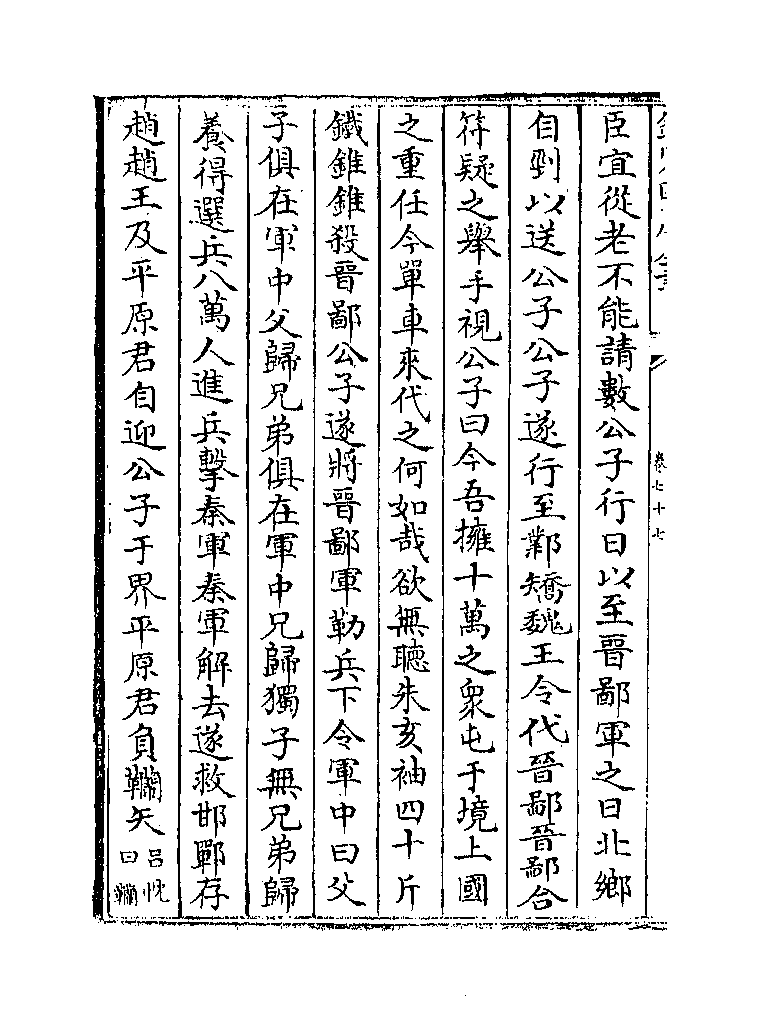 卷七十七
臣宜從老不能請數公子行日以至晉鄙軍之日北鄉
自剄以送公子公子遂行至鄴矯魏王令代晉鄙晉鄙合
符疑之舉手視公子曰今吾擁十萬之衆屯于境上國
之重任今單車來代之何如哉欲無聽朱亥袖四十斤
鐵錐錐殺晉鄙公子遂將晉鄙軍勒兵下令軍中曰父
子俱在軍中父歸兄弟俱在軍中兄歸獨子無兄弟歸
養得選兵八萬人進兵擊秦軍秦軍解去遂救邯鄲存
趙趙王及平原君自迎公子于界平原君負韊矢呂忱
曰韊